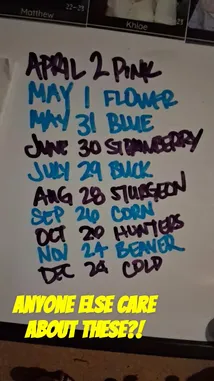 Matthew
Khloe
APRIL 2 PINK
MAY 1 FLOWER
MAY 31 BLUE
JUNE 30 STRAWBERRY
JULY 29 BUCK
AUG 28 STURGEON
SEP 26 CORN
OCT 26 HUNTERS
NOV 24 BEAVER
DEC 24 COLD
ANYONE ELSE CARE
ABOUT THESE?!